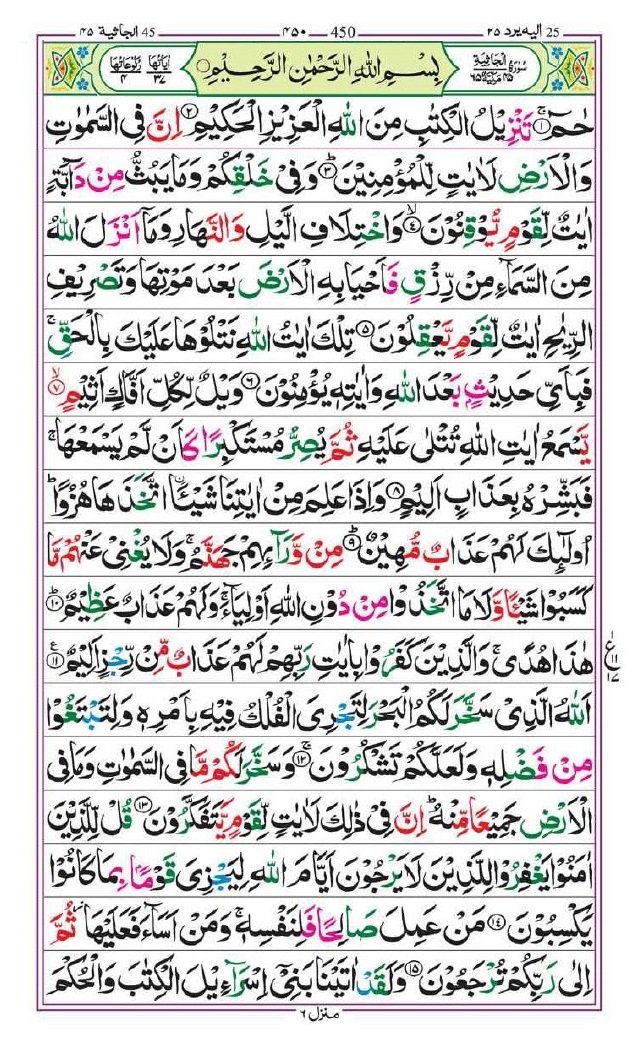 45 الجاثية ٤٥
٤٥٠ 450
25 اليه يرد ٢٥
سورة الجاثية
بِسْمِ اللّٰهِ الرَّحْمٰنِ الرَّحِيْمِ
اٰيَاتُهَا ٣٧ رُكُوْعَاتُهَا ٤
حٰمٓ ۚ﴿۱﴾ تَنْزِيْلُ الْكِتٰبِ مِنَ اللّٰهِ الْعَزِيْزِ الْحَكِيْمِ ﴿۲﴾ اِنَّ فِى السَّمٰوٰتِ
وَالْاَرْضِ لَاٰيٰتٍ لِّلْمُؤْمِنِيْنَ ؕ﴿۳﴾ وَفِىْ خَلْقِكُمْ وَمَا يَبُثُّ مِنْ دَآبَّةٍ
اٰيٰتٌ لِّقَوْمٍ يُّوْقِنُوْنَ ۙ﴿۴﴾ وَاخْتِلَافِ الَّيْلِ وَالنَّهَارِ وَمَاۤ اَنْزَلَ اللّٰهُ
مِنَ السَّمَآءِ مِنْ رِّزْقٍ فَاَحْيَا بِهِ الْاَرْضَ بَعْدَ مَوْتِهَا وَتَصْرِيْفِ
الرِّيٰحِ اٰيٰتٌ لِّقَوْمٍ يَّعْقِلُوْنَ ﴿۵﴾ تِلْكَ اٰيٰتُ اللّٰهِ نَتْلُوْهَا عَلَيْكَ بِالْحَقِّ ۚ
فَبِاَىِّ حَدِيْثٍۭ بَعْدَ اللّٰهِ وَاٰيٰتِهٖ يُؤْمِنُوْنَ ﴿۶﴾ وَيْلٌ لِّكُلِّ اَفَّاكٍ اَثِيْمٍ ۙ﴿۷﴾
يَّسْمَعُ اٰيٰتِ اللّٰهِ تُتْلٰى عَلَيْهِ ثُمَّ يُصِرُّ مُسْتَكْبِرًا كَاَنْ لَّمْ يَسْمَعْهَا ۚ
فَبَشِّرْهُ بِعَذَابٍ اَلِيْمٍ ﴿۸﴾ وَاِذَا عَلِمَ مِنْ اٰيٰتِنَا شَيْـًٔا اتَّخَذَهَا هُزُوًا ؕ
اُولٰٓئِكَ لَهُمْ عَذَابٌ مُّهِيْنٌ ؕ﴿۹﴾ مِنْ وَّرَآئِهِمْ جَهَنَّمُ ۚ وَلَا يُغْنِىْ عَنْهُمْ مَّا
كَسَبُوْا شَيْـًٔا وَّلَا مَا اتَّخَذُوْا مِنْ دُوْنِ اللّٰهِ اَوْلِيَآءَ ۚ وَلَهُمْ عَذَابٌ عَظِيْمٌ ؕ﴿۱۰﴾
هٰذَا هُدًى ۚ وَالَّذِيْنَ كَفَرُوْا بِاٰيٰتِ رَبِّهِمْ لَهُمْ عَذَابٌ مِّنْ رِّجْزٍ اَلِيْمٌ ﴿۱۱﴾
ع
اَللّٰهُ الَّذِىْ سَخَّرَ لَكُمُ الْبَحْرَ لِتَجْرِىَ الْفُلْكُ فِيْهِ بِاَمْرِهٖ وَلِتَبْتَغُوْا
مِنْ فَضْلِهٖ وَلَعَلَّكُمْ تَشْكُرُوْنَ ۚ﴿۱۲﴾ وَسَخَّرَ لَكُمْ مَّا فِى السَّمٰوٰتِ وَمَا فِى
الْاَرْضِ جَمِيْعًا مِّنْهُ ؕ اِنَّ فِىْ ذٰلِكَ لَاٰيٰتٍ لِّقَوْمٍ يَّتَفَكَّرُوْنَ ﴿۱۳﴾ قُلْ لِّلَّذِيْنَ
اٰمَنُوْا يَغْفِرُوْا لِلَّذِيْنَ لَا يَرْجُوْنَ اَيَّامَ اللّٰهِ لِيَجْزِىَ قَوْمًۢا بِمَا كَانُوْا
يَكْسِبُوْنَ ﴿۱۴﴾ مَنْ عَمِلَ صَالِحًا فَلِنَفْسِهٖ ۚ وَمَنْ اَسَآءَ فَعَلَيْهَا ؗ ثُمَّ
اِلٰى رَبِّكُمْ تُرْجَعُوْنَ ﴿۱۵﴾ وَلَقَدْ اٰتَيْنَا بَنِىْۤ اِسْرَآءِيْلَ الْكِتٰبَ وَالْحُكْمَ
منزل ٦